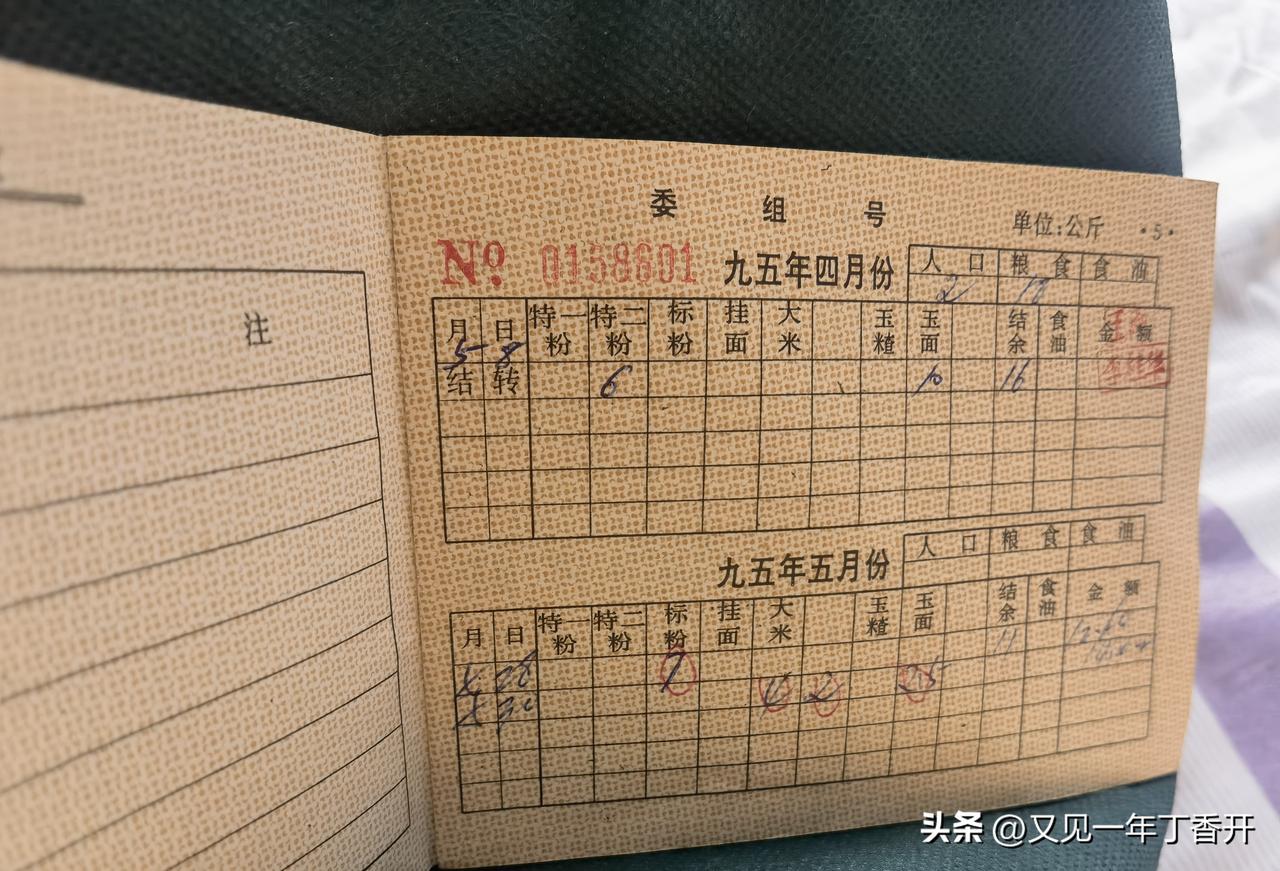 注
委 组 号
单位:公斤 ·5·
№ 0158601 九五年四月份 人口 粮食 食油
2 18
月 日 特一粉 特二粉 标粉 挂面 大米 玉糁 玉面 结余 食油 金额
5 8
结转 6 10 16
九五年五月份 人口 粮食 食油
月 日 特一粉 特二粉 标粉 挂面 大米 玉糁 玉面 结余 食油 金额
28 7 11
4 2 25
头条 @又见一年丁香开